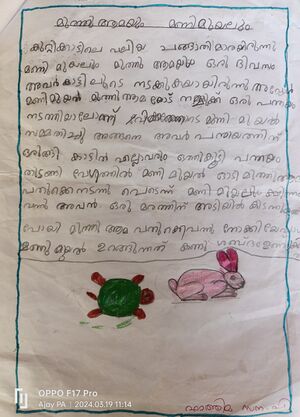 മിന്നു ആമയും മണി മുയലും
കുറ്റിക്കാട്ടിലെ വലിയ ചങ്ങാതിമാരായിരുന്നു
മണി മുയലും മിന്നു ആമയും ഒരു ദിവസം
അവർ കാട്ടിലൂടെ നടക്കുകയായിരുന്നു അപ്പോൾ
മണിമുയൽ മിന്നി ആമ യോട് നമുക്ക് ഒരു പന്തയം
നടത്തിയാലോ മണി മുയൽ
സമ്മതിച്ചു അങ്ങനെ അവർ പന്തയത്തിന്
ഒരുങ്ങി കാട്ടിൽ എല്ലാവരും ഒത്തുകൂടി പന്തയം
തുടങ്ങി വേഗത്തിൽ മണി മുയൽ ഓടി മിന്നി
പതുക്കെ നടന്നു പെട്ടെന്ന് മണി മുയലിന് ക്ഷീണം
വന്നു അവൻ ഒരു മരത്തിന് അടിയിൽ കിടന്നു
പോയി മിന്നി ആമ പതുക്കെ വന്നു നോക്കി
മണി മുയൽ ഉറങ്ങുന്നത് കണ്ടു ശബ്ദം
ഫാത്തിമ
OPPO F17 Pro
Ajay PA | 2024.03.19 11:14